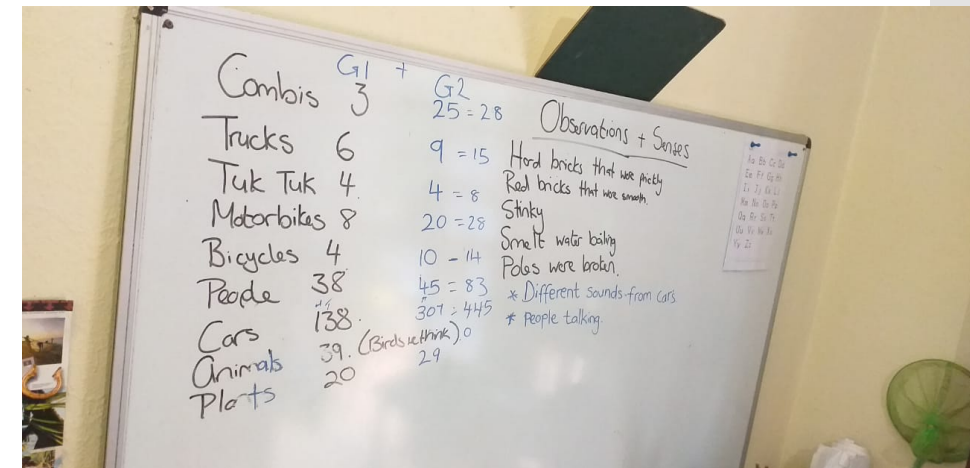 G1 + G2
Combis 3 25 = 28
Trucks 6 9 = 15
Tuk Tuk 4 4 = 8
Motorbikes 8 20 = 28
Bicycles 4 10 - 14
People 38 45 = 83
Cars 138 307 = 445
Animals 39. (Birds we think) 0
Plants 20 29
Observations + Senses
Hard bricks that were prickly
Red bricks that were smooth.
Stinky
Smelt water boiling
Poles were broken.
* Different sounds from cars
* People talking.